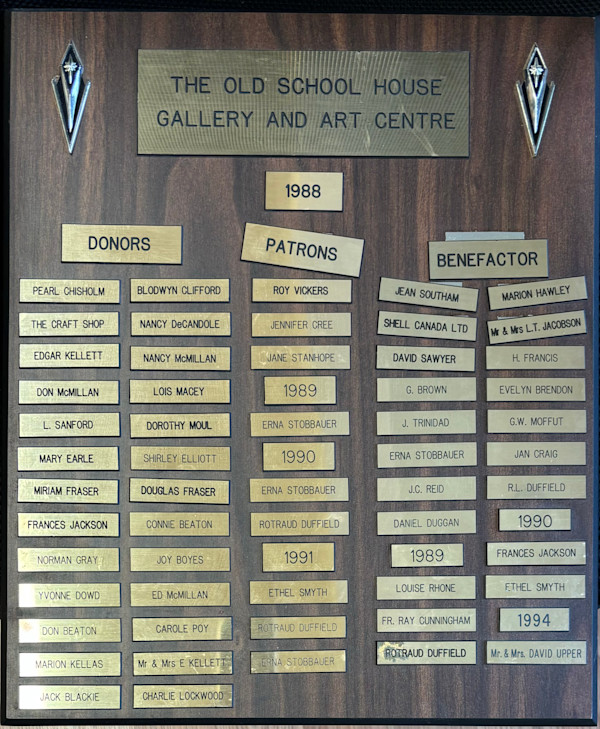 THE OLD SCHOOL HOUSE
GALLERY AND ART CENTRE
1988
DONORS
PEARL CHISHOLM
THE CRAFT SHOP
EDGAR KELLETT
DON McMILLAN
L. SANFORD
MARY EARLE
MIRIAM FRASER
FRANCES JACKSON
NORMAN GRAY
YVONNE DOWD
DON BEATON
MARION KELLAS
JACK BLACKIE
BLODWYN CLIFFORD
NANCY DeCANDOLE
NANCY McMILLAN
LOIS MACEY
DOROTHY MOUL
SHIRLEY ELLIOTT
DOUGLAS FRASER
CONNIE BEATON
JOY BOYES
ED McMILLAN
CAROLE POY
Mr & Mrs E KELLETT
CHARLIE LOCKWOOD
PATRONS
ROY VICKERS
JENNIFER CREE
JANE STANHOPE
1989
ERNA STOBBAUER
1990
ERNA STOBBAUER
ROTRAUD DUFFIELD
1991
ETHEL SMYTH
ROTRAUD DUFFIELD
ERNA STOBBAUER
BENEFACTOR
JEAN SOUTHAM
SHELL CANADA LTD
DAVID SAWYER
G. BROWN
J. TRINIDAD
ERNA STOBBAUER
J.C. REID
DANIEL DUGGAN
1989
LOUISE RHONE
FR. RAY CUNNINGHAM
ROTRAUD DUFFIELD
MARION HAWLEY
Mr & Mrs L.T. JACOBSON
H. FRANCIS
EVELYN BRENDON
G.W. MOFFUT
JAN CRAIG
R.L. DUFFIELD
1990
FRANCES JACKSON
ETHEL SMYTH
1994
Mr. & Mrs. DAVID UPPER